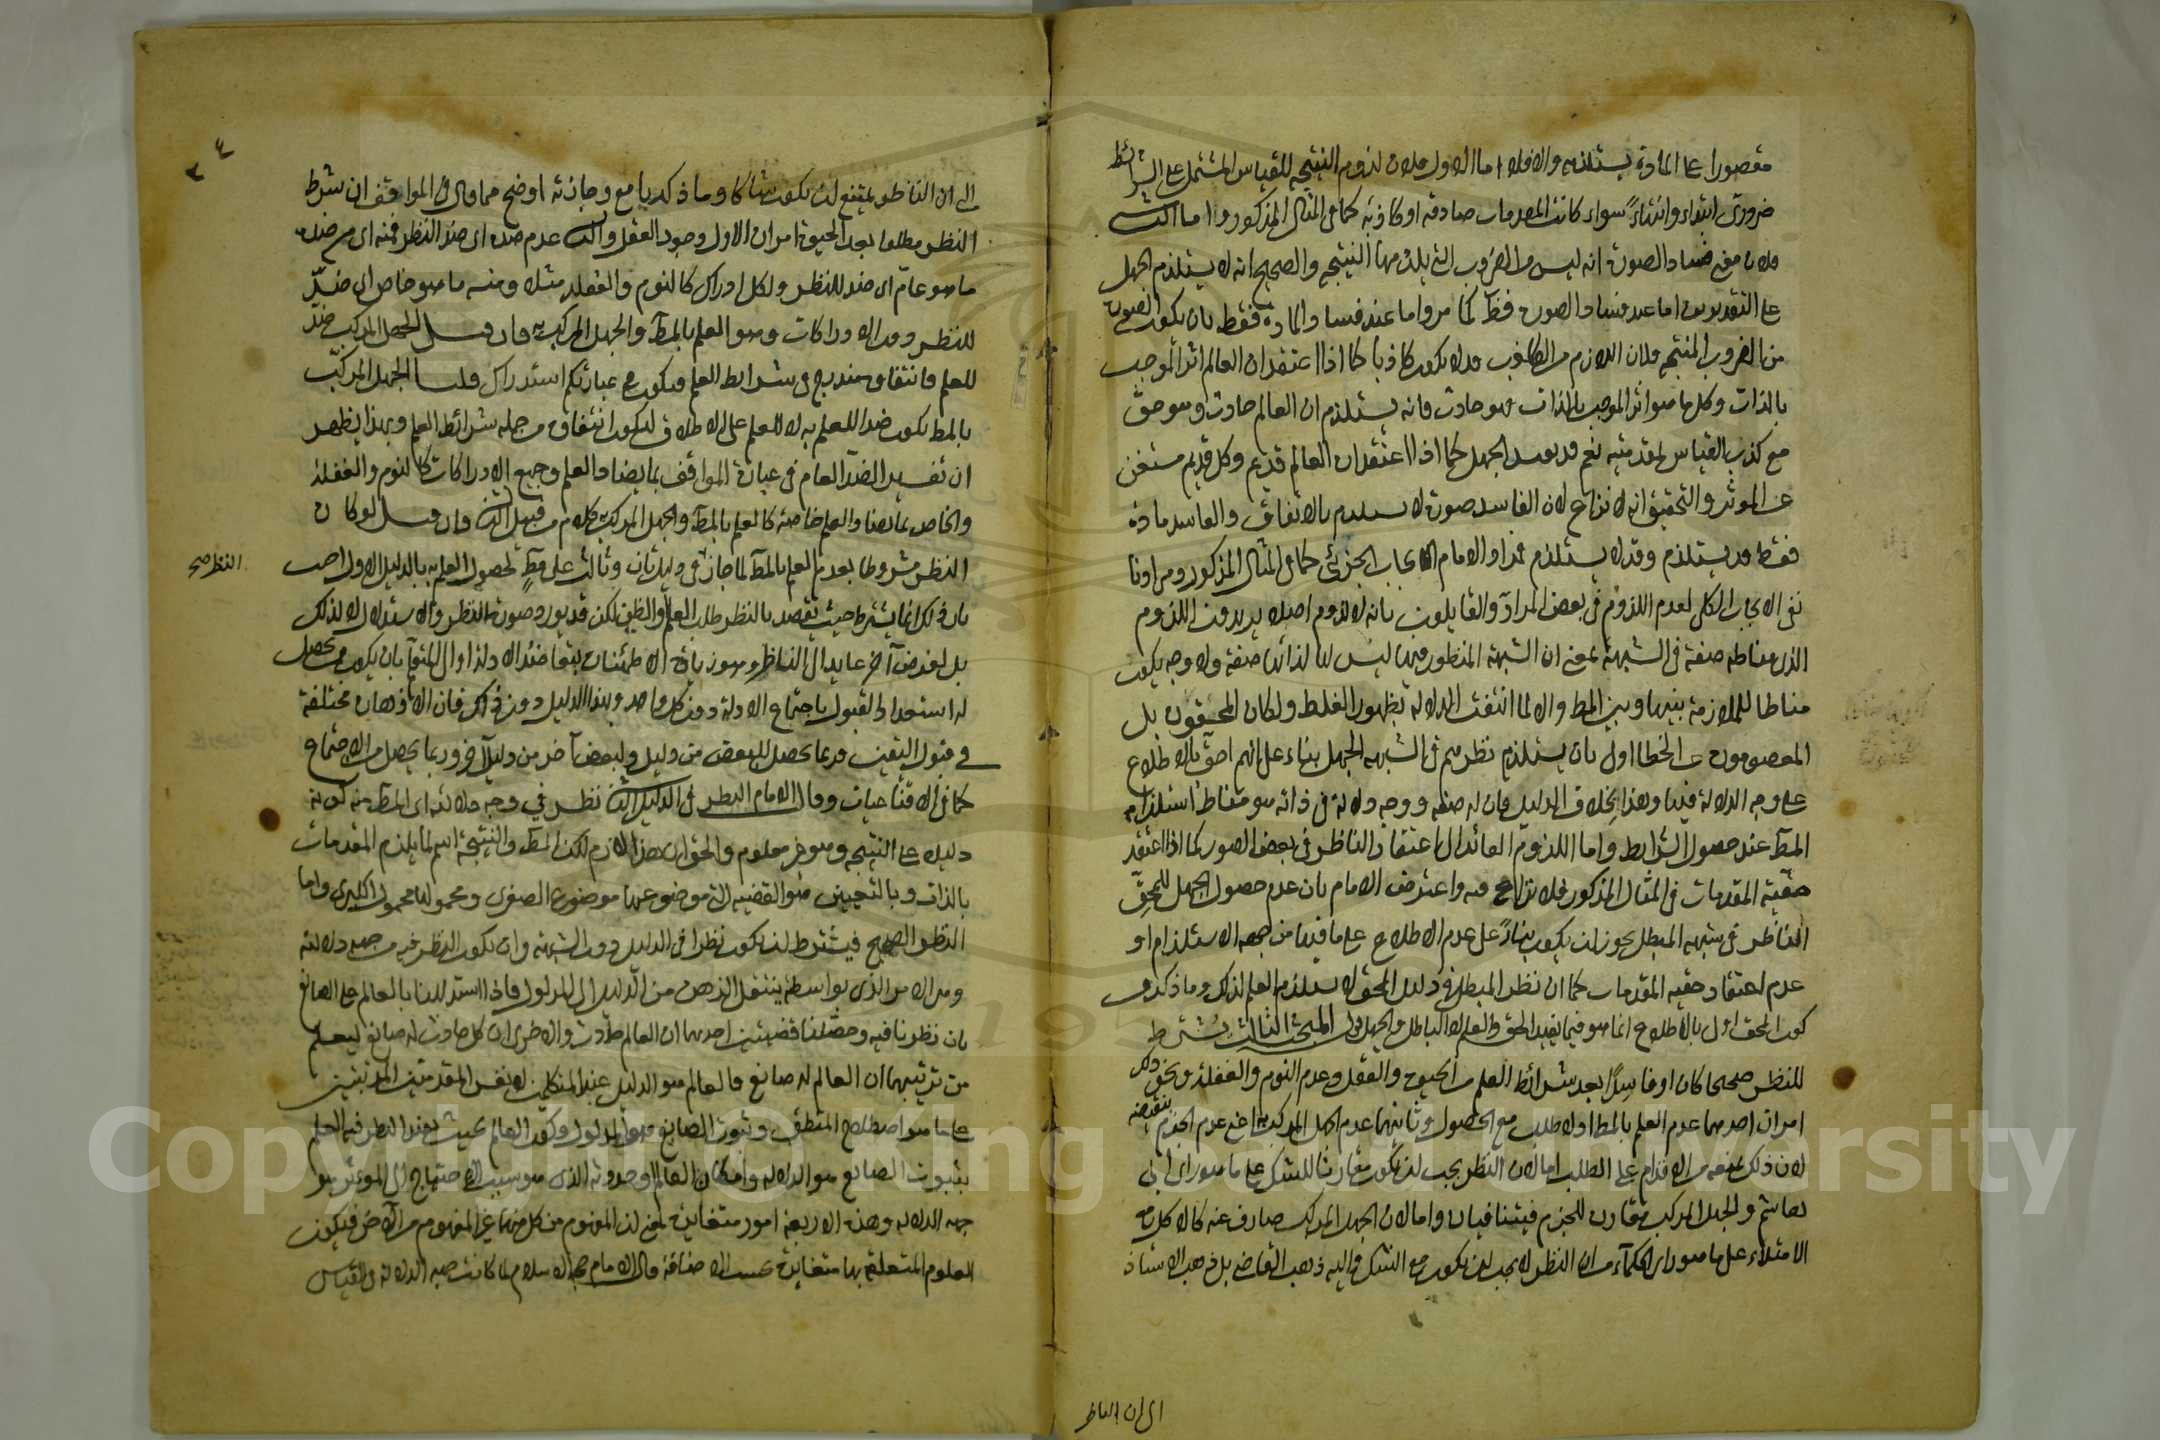 مقصورا على المادة يستلزمه والا فلا اما الاول فلان لزوم النتيجة للقياس المشتمل على الشرائط
ضروري ابتداء وانتهاء سواء كانت المقدمات صادقة او كاذبة كما في المثال المذكور واما الثاني
فلان معنى فساد الصورة انه ليس من الضروب التي يلزمها النتيجة والصحيح انه لا يستلزم الجهل
على التقديرين اما عند فساد الصورة فظ كما مر واما عند فساد المادة فقط بان يكون الصورة
من الضروب المنتجة فلان اللازم من الكاذب قد لا يكون كاذبا كما اذا اعتقد ان العالم اثر الموجب
بالذات وكل ما هو اثر الموجب بالذات فهو حادث فانه يستلزم ان العالم حادث وهو حق
مع كذب القياس بمقدمتيه نعم قد يفيد الجهل كما اذا اعتقد ان العالم قديم وكل قديم مستغن
عن الموثر والتحقيق انه لا نزاع لان الفاسد صورة لا يستلزم بالاتفاق والفاسد مادة
فقط قد يستلزم وقد لا يستلزم فمراد الامام الايجاب الجزئي كما في المثال المذكور ومرادنا
نفى الايجاب الكلي لعدم اللزوم في بعض المواد والقايلون بانه لا لزوم اصلا يريدون اللزوم
الذي مناطه صفة في الشبهة بمعنى ان الشبهة المنظور فيها ليس لها لذاتها صفة ولا وجه يكون
مناطا للملازمة بينها وبين المط والا لما انتفت الدلالة بظهور الغلط ولكان المحققون بل
المعصومون عن الخطا اولى بان يستلزم نظرهم في الشبهة الجهل بناء على انهم احق بالاطلاع
على وجه الدلالة فيها وهذا بخلاف الدليل فان له صفة ووجه دلالة في ذاته هو مناط استلزامه
المط عند حصول الشرايط واما اللزوم العائد الى اعتقاد الناظر في بعض الصور كما اذا اعتقد
حقية المقدمات في المثال المذكور فلا نزاع فيه واعترض الامام بان عدم حصول الجهل للمحق
الناظر في شبهة المبطل يجوز ان يكون بناء على عدم الاطلاع على ما فيها من جهة الاستلزام او
عدم اعتقاد حقية المقدمات كما ان نظر المبطل في دليل المحق لا يستلزم العلم لذلك وما ذكر من
كون المحق اولى بالاطلاع انما هو فيما يفيد الحق والعلم لا الباطل والجهل قال المبحث الثالث يشترط
للنظر صحيحا كان او فاسدا بعد شرائط العلم من الحيوة والعقل وعدم النوم والغفلة ونحو ذلك
امران احدهما عدم العلم بالمط اذ لا طلب مع الحصول وثانيهما عدم الجهل المركب به اعني عدم الجزم بنقيضه
لان ذلك يمنعه من الاقدام على الطلب اما لان النظر يجب ان يكون مقارنا للشك على ما هو راى ابي
هاشم والجهل المركب مقارن للجزم فيتنافيان واما لان الجهل المركب صارف عنه كالاكل مع
الامتلاء على ما هو راى الحكماء من ان النظر لا يجب ان يكون مع الشك واليه ذهب القاضي بل ذهب الاستاذ
الى ان الناظر
٣٤
الى ان الناظر يمتنع ان يكون شاكا وما ذكرنا مع وجازته اوضح مما قال في المواقف ان شرط
النظر مطلقا بعد الحيوة امران الاول وجود العقل والثاني عدم ضده اى ضد النظر فمنه اى من ضده
ما هو عام اى ضد للنظر ولكل ادراك كالنوم والغفلة مثلا ومنه ما هو خاص اى ضد
للنظر دون الادراكات وهو العلم بالمط والجهل المركب به فان قيل الجهل المركب ضد
للعلم فانتفاؤه مندرج في شرايط العلم فيكون في عبارتكم استدراك قلنا الجهل المركب
بالمط يكون ضدا للعلم به لا للعلم على الاطلاق ليكون انتفاؤه من جملة شرائط العلم وبهذا يظهر
ان تفسير الضد العام في عبارة المواقف بما يضاد العلم وجميع الادراكات كالنوم والغفلة
والخاص بما يضاد العلم خاصة كالعلم بالمط والجهل المركب به كلام من قبيل الثاني فان قيل لو كان
النظر مشروطا بعدم العلم بالمط لما جاز في دليل ثان وثالث على مط لحصول العلم به بالدليل الاول اجيب
النظر صح
بان ذلك انما يشترط حيث يقصد بالنظر طلب العلم او الظن لكن قد يورد صورة النظر والاستدلال لا لذلك
بل لغرض آخر عايد الى الناظر وهو زيادة الاطمئنان بتعاضد الادلة او الى المتعلم بان يكون ممن يحصل
له استعداد القبول باجتماع الادلة دون كل واحد وبهذا الدليل دون ذاك فان الاذهان مختلفة
في قبول اليقين فربما يحصل للبعض من دليل ولبعض آخر من دليل آخر وربما يحصل من الاجتماع
كما في الاقناعيات وقال الامام النظر في الدليل الثاني نظر في وجه دلالته اى المط منه كونه
دليلا على النتيجة وهو غير معلوم والحق ان هذا لازم لكن المط والنتيجة اسم لما يلزم المقدمات
بالذات وبالتعيين هو القضية التي موضوعها موضوع الصغرى ومحمولها محمول الكبرى واما
النظر الصحيح فيشترط ان يكون نظرا في الدليل دون الشبهة وان يكون النظر فيه من جهة دلالته
وهي الامر الذي بواسطته ينتقل الذهن من الدليل الى المدلول فاذا استدللنا بالعالم على الصانع
بان نظرنا فيه وحصلنا قضيتين احديهما ان العالم حادث والاخرى ان كل حادث له صانع ليعلم
من ترتيبهما ان العالم له صانع فالعالم هو الدليل عند المتكلمين لا نفس المقدمتين المرتبتين
على ما هو اصطلاح المنطق وثبوت الصانع هو المدلول وكون العالم بحيث يفيد النظر فيه العلم
بثبوت الصانع هو الدلالة وامكان العالم او حدوثه الذي هو سبب الاحتياج الى الموثر هو
جهة الدلالة وهذه الاربعة امور متغايرة بمعنى ان المفهوم من كل منها غير المفهوم من الآخر فيكون
العلوم المتعلقة بها متغايرة بحسب الاضافة قال الامام حجة الاسلام لما كانت جهة الدلالة في القياس